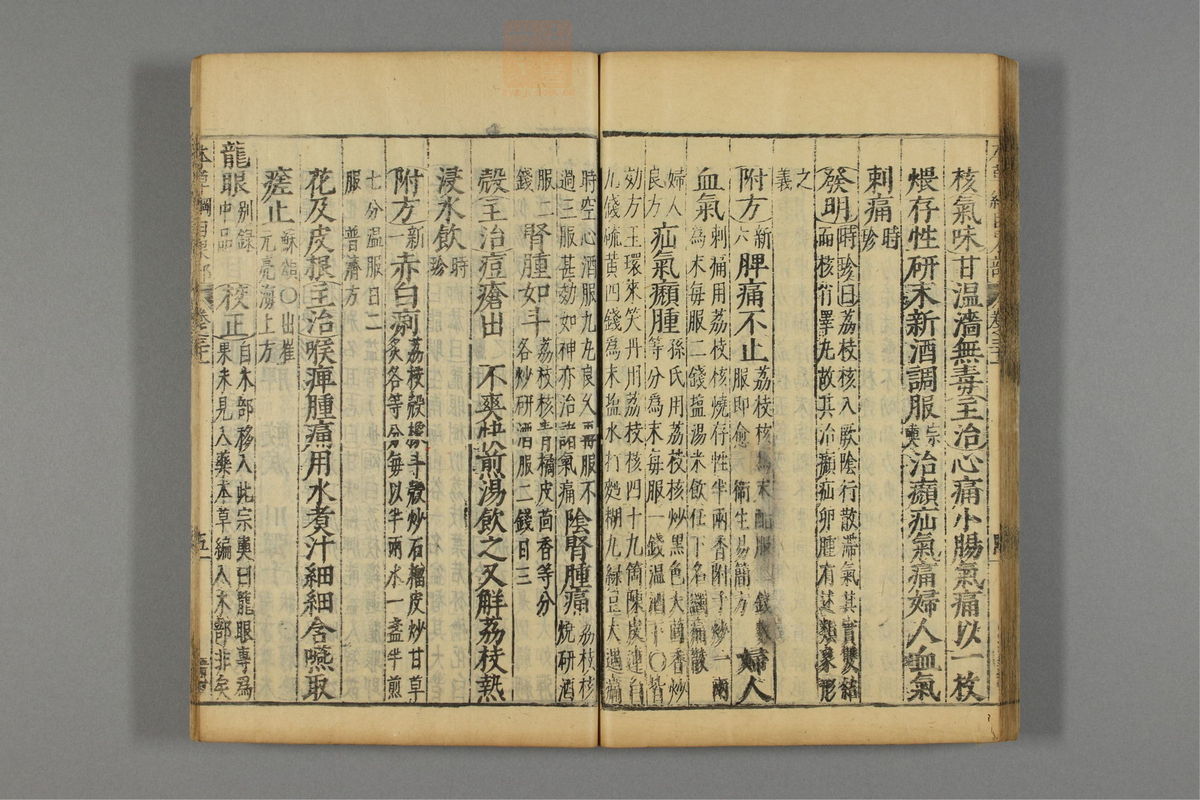 核氣味甘溫濇無毒主治心痛小腸氣痛以一枚
煨存性研末新酒調服宗奭治㿗疝氣痛婦人血氣
刺痛時珍
發明時珍曰荔枝核入厥陰行散滯氣其實雙結
而核肖睪丸故其治㿗疝卵腫有述類象形
之
義
附方新六脾痛不止荔枝核為末醋服二錢數
服即愈 衞生易簡方 婦人
血氣刺痛用荔枝核燒存性半兩香附子炒一兩
為末每服二錢鹽湯米飲任下名蠲痛散
婦人
良方疝氣㿗腫孫氏用荔枝核炒黑色大茴香炒
等分為末每服一錢溫酒下〇皆
効方玉環來笑丹用荔枝核四十九箇陳皮連白
九錢硫黄四錢為末鹽水打麫糊丸緑豆大遇痛
時空心酒服九丸良久再服不
過三服甚効如神亦治諸氣痛陰腎腫痛荔枝核
燒研酒
服二
錢腎腫如斗荔枝核青橘皮茴香等分
各炒研酒服二錢日三
殼主治痘瘡出不爽快煎湯飲之又解荔枝熱
浸水飲時珍
附方新一赤白痢荔枝殼橡斗殼炒石榴皮炒甘草
炙各等分每以半兩水一盞半煎
七分溫服日二
服 普濟方
花及皮根主治喉痺腫痛用水煮汁細細含嚥取
瘥止蘇頌〇出崔
元亮海上方
龍眼别錄
中品校正自木部移入此宗奭曰龍眼專為
果未見入藥本草編入木部非矣